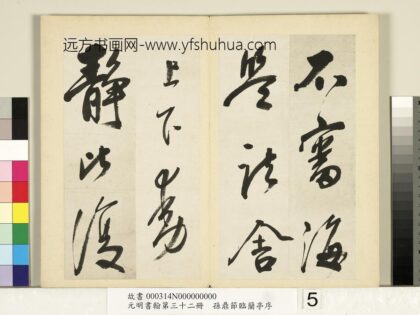 不審海
鹽諸舍
上下動
靜比復
远方书画网-www.yfshuhua.com
故書 000314N000000000
元明書翰第三十二冊 孫鼎節臨蘭亭序
5